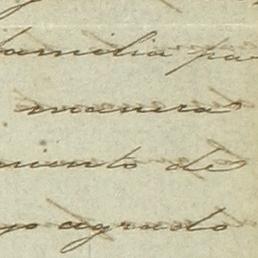 familia pa
manera
miento de
go agrado